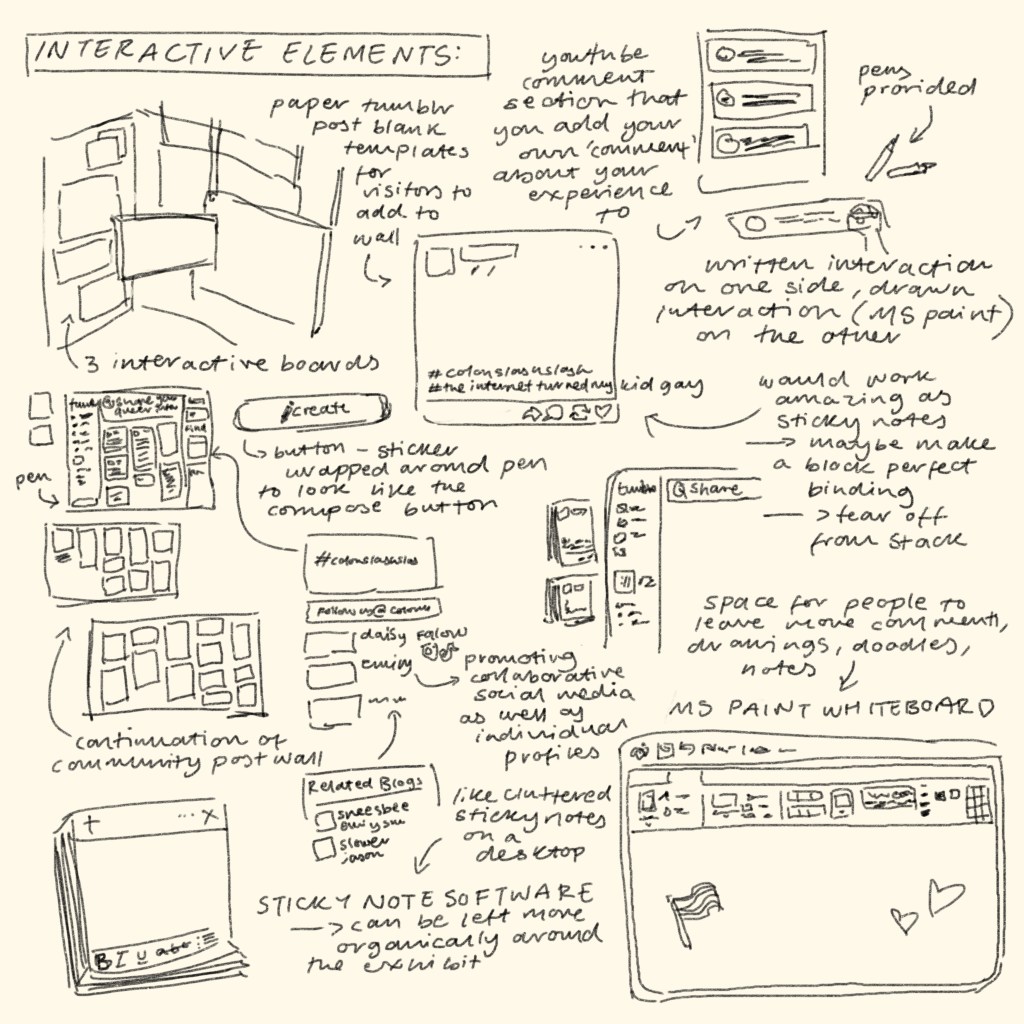 INTERACTIVE ELEMENTS:
paper tumblr
post blank
templates
for
visitors to
add to
wall
youtube
comment
section that
you add your
own 'comment'
about your
experience
to
pens
provided
written interaction
on one side, drawn
interaction (MS paint)
on the other
3 interactive boards
#colonslashslash
#the internet turned my kid gay
would work
amazing as
sticky notes
→ maybe make
a block perfect
binding
→ tear off
from stack
@share your
queer
find
pen
create
button - sticker
wrapped around pen
to look like the
compose button
tumblr
share
#colonslashslash
Follow us@
daisy Follow
emily
promoting
collaborative
social media
as well as
individual
profiles
space for people to
leave more comments,
drawings, doodles,
notes
MS PAINT WHITEBOARD
continuation of
community post wall
Related Blogs
sneesbee
slower
jason
like cluttered
sticky notes
on a
desktop
+ ... X
B I U abc
STICKY NOTE SOFTWARE
→ can be left more
organically around
the exhibit